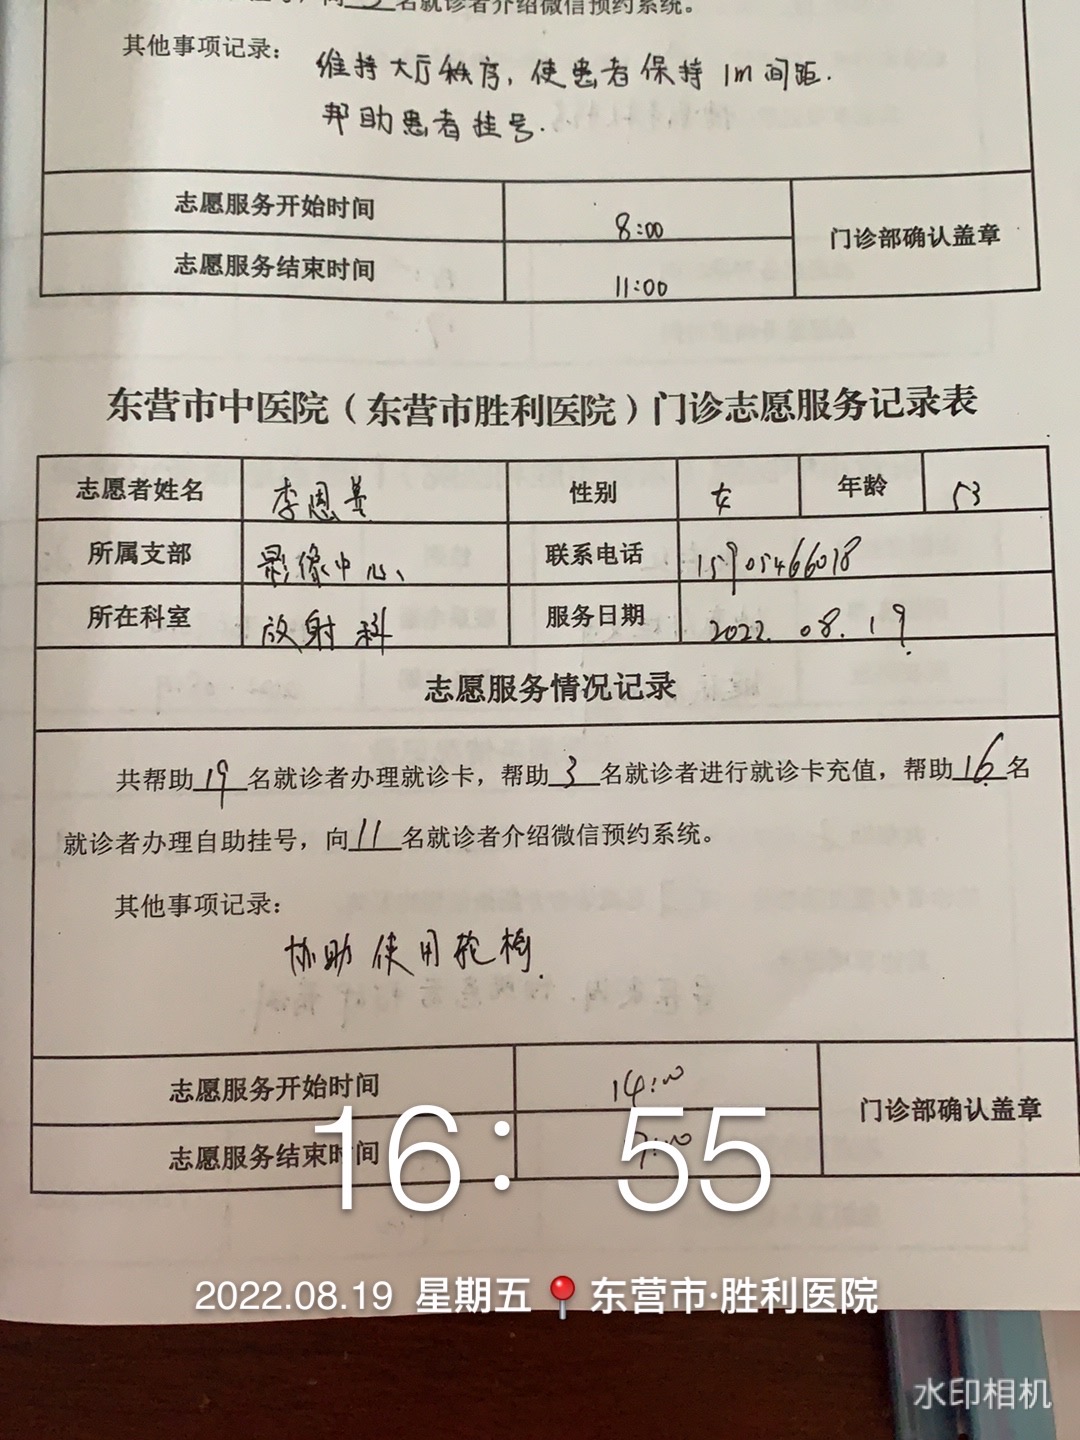 名就诊者介绍微信预约系统。
其他事项记录:
维持大厅秩序,使患者保持1m间距.
帮助患者挂号.
志愿服务开始时间 8:00
门诊部确认盖章
志愿服务结束时间 11:00
东营市中医院(东营市胜利医院)门诊志愿服务记录表
志愿者姓名 李恩美 性别 女 年龄 53
所属支部 影像中心 联系电话 15905466018
所在科室 放射科 服务日期 2022.08.19
志愿服务情况记录
共帮助19名就诊者办理就诊卡,帮助3名就诊者进行就诊卡充值,帮助16名
就诊者办理自助挂号,向11名就诊者介绍微信预约系统。
其他事项记录:
协助使用轮椅.
志愿服务开始时间 14:00
门诊部确认盖章
志愿服务结束时间
16:55
2022.08.19 星期五 东营市·胜利医院
水印相机